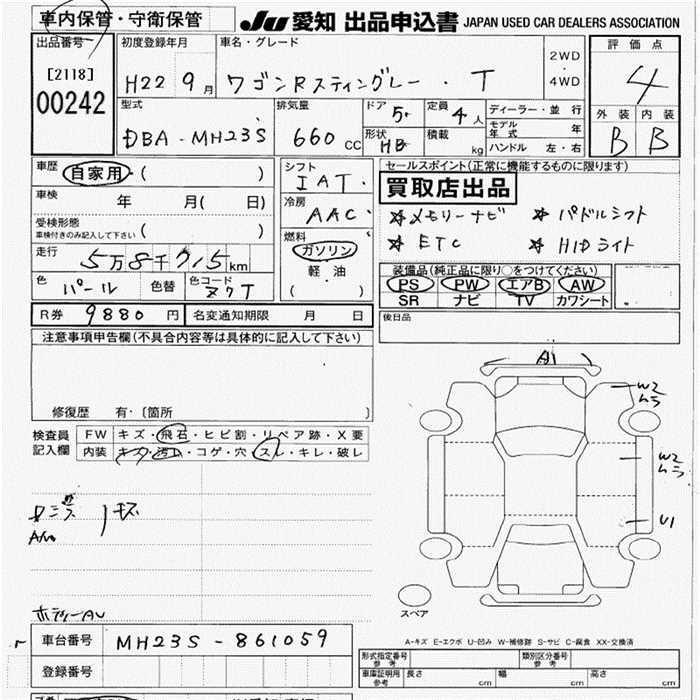 車内保管・守衛保管
JU 愛知 出品申込書 JAPAN USED CAR DEALERS ASSOCIATION
出品番号 初度登録年月 車名・グレード 2WD・4WD 評価点
[2118] H22 9月 ワゴンRスティングレー・T 4
00242
型式 排気量 ドア 5 定員 4人 ディーラー・並行 外装 内装
DBA-MH23S 660 CC 形状 HB 積載 kg モデル年式 年 B B
ハンドル 左・右
車歴 自家用・( ) シフト IAT セールスポイント(正常に機能するものに限ります)
車検 年 月( 日) 冷房 AAC 買取店出品
受検形態 ( ) メモリーナビ パドルシフト
車検付きのみ記入して下さい 燃料 ETC HIDライト
走行 5万8千715km ガソリン 装備品(純正品に限り〇をつけてください)
軽油 PS PW エアB AW
色 パール 色替 色コード Z7T ( ) SR ナビ TV カワシート
R券 9880円 名変通知期限 月 日 後日品
注意事項申告欄(不具合内容等は具体的に記入して下さい)
A1
W2
ムラ
修復歴 有・〔箇所 〕
検査員記入欄 FW キズ・飛石・ヒビ割・リペア跡・X要
内装 キズ・汚レ・コゲ・穴・スレ・キレ・破レ
W2
ムラ
U1
キズ
スペア
ボディーAU
A-キズ E-エクボ U-凹み W-補修跡 S-サビ C-腐食 XX-交換済
車台番号 MH23S-861059
登録番号
形式指定番号 参考 類別区分番号 参考
車庫証明用 参考 長さ cm 幅 cm 高さ cm